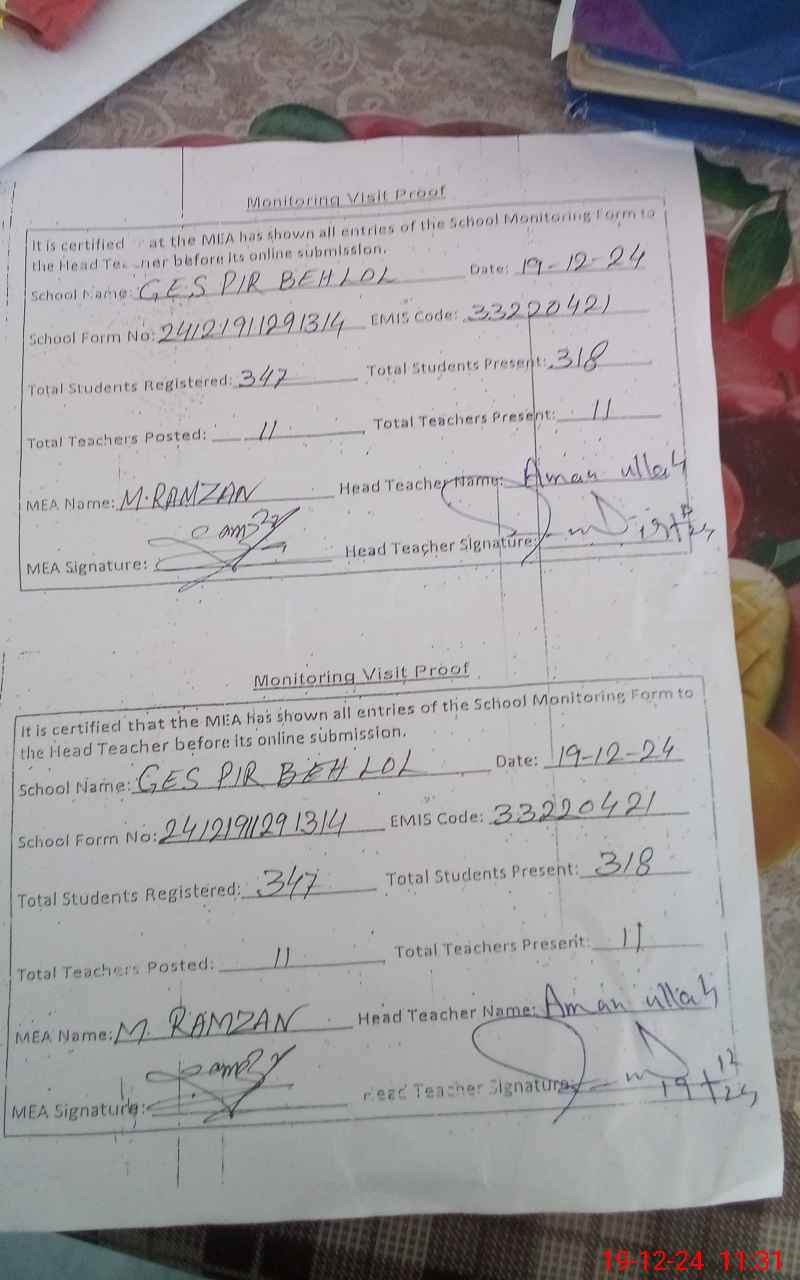 Monitoring Visit Proof
It is certified at the MEA has shown all entries of the School Monitoring Form to
the Head before its online submission.
School Name: GES PIR BEHLOL Date: 19-12-24
School Form No: 24121911291314 EMIS Code: 33220421
Total Students Registered: 347 Total Students Present: 318
Total Teachers Posted: 11 Total Teachers Present: 11
MEA Name: M. RAMZAN Head Teacher Name: Aman ullah
MEA Signature: Head Teacher Signature:
Monitoring Visit Proof
It is certified that the MEA has shown all entries of the School Monitoring Form to
the Head Teacher before its online submission.
School Name: GES PIR BEHLOL Date: 19-12-24
School Form No: 24121911291314 EMIS Code: 33220421
Total Students Registered: 347 Total Students Present: 318
Total Teachers Posted: 11 Total Teachers Present: 11
MEA Name: M. RAMZAN Head Teacher Name: Aman ullah
MEA Signature: Head Teacher Signature:
19-12-24 11:31